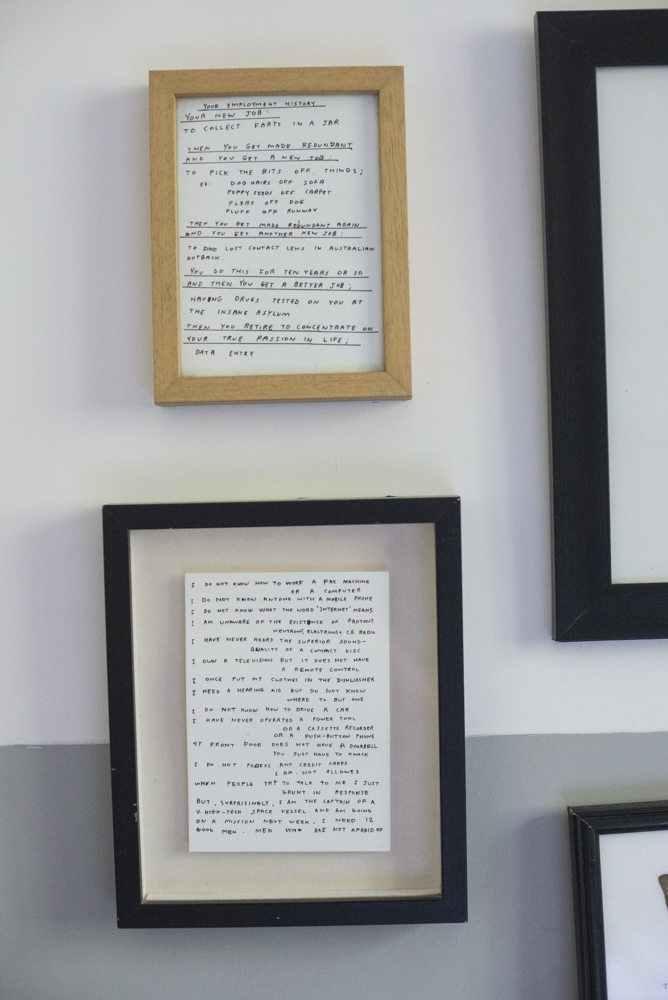 YOUR EMPLOYMENT HISTORY
YOUR NEW JOB:
TO COLLECT FARTS IN A JAR
THEN YOU GET MADE REDUNDANT
AND YOU GET A NEW JOB:
TO PICK THE BITS OFF THINGS;
EG: DOG HAIRS OFF SOFA
POPPY SEEDS OFF CARPET
FLEAS OFF DOG
FLUFF OFF RUNWAY
THEN YOU GET MADE REDUNDANT AGAIN
AND YOU GET ANOTHER NEW JOB:
TO FIND LOST CONTACT LENS IN AUSTRALIAN
OUTBACK.
YOU DO THIS FOR TEN YEARS OR SO
AND THEN YOU GET A BETTER JOB;
HAVING DRUGS TESTED ON YOU AT
THE INSANE ASYLUM
THEN YOU RETIRE TO CONCENTRATE ON
YOUR TRUE PASSION IN LIFE;
DATA ENTRY
I DO NOT KNOW HOW TO WORK A FAX MACHINE
OR A COMPUTER
I DO NOT KNOW ANYONE WITH A MOBILE PHONE
I DO NOT KNOW WHAT THE WORD 'INTERNET' MEANS
I AM UNAWARE OF THE EXISTENCE OF PROTONS
NEUTRONS, ELECTRONS OR CB RADIO
I HAVE NEVER HEARD THE SUPERIOR SOUND-
QUALITY OF A COMPACT DISC
I OWN A TELEVISION BUT IT DOES NOT HAVE
A REMOTE CONTROL
I ONCE PUT MY CLOTHES IN THE DISHWASHER
I NEED A HEARING AID BUT DO NOT KNOW
WHERE TO BUY ONE
I DO NOT KNOW HOW TO DRIVE A CAR
I HAVE NEVER OPERATED A POWER TOOL
OR A CASSETTE RECORDER
OR A PUSH-BUTTON PHONE
MY FRONT DOOR DOES NOT HAVE A DOORBELL
YOU JUST HAVE TO KNOCK
I DO NOT POSSESS ANY CREDIT CARDS
I AM NOT ALLOWED
WHEN PEOPLE TRY TO TALK TO ME I JUST
GRUNT IN RESPONSE
BUT, SURPRISINGLY, I AM THE CAPTAIN OF A
V. HIGH-TECH SPACE VESSEL AND AM GOING
ON A MISSION NEXT WEEK. I NEED 12
GOOD MEN. MEN WHO ARE NOT AFRAID OF